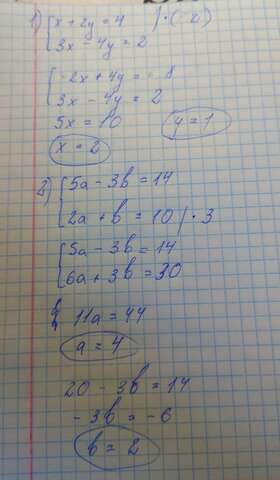 1) { x + 2y = 4 | · ( 2)
3x - 4y = 2
{ -2x + 4y = 8
3x - 4y = 2
5x = 10
y = 1
x = 2
2) { 5a - 3b = 14
2a + b = 10 | · 3
{ 5a - 3b = 14
6a + 3b = 30
11a = 44
a = 4
20 - 3b = 14
- 3b = - 6
b = 2